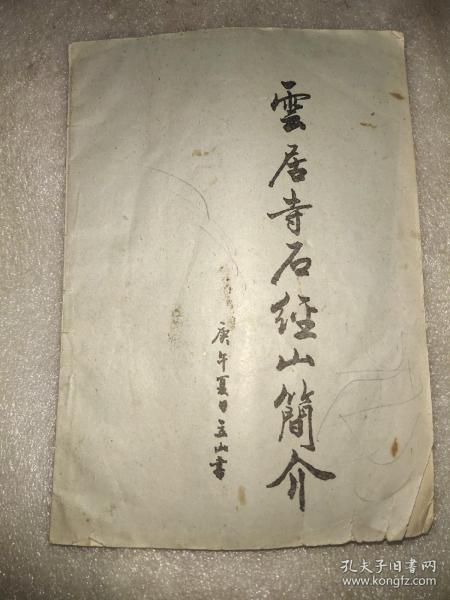 雲居寺石經山簡介
庚午夏日孟山書
孔夫子旧书网
www.kongfz.com